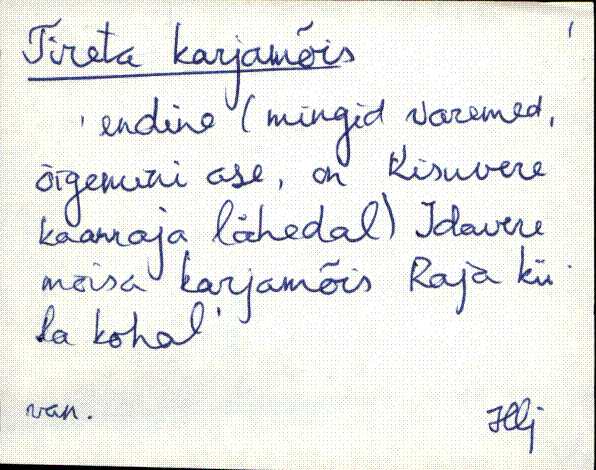 Tireta karjamõis
'endine (mingid varemed,
õigemini ase, on Kisuvere
kaanraja lähedal) Idavere
mõisa karjamõis Raja kü
la kohal'
van.
Hlj